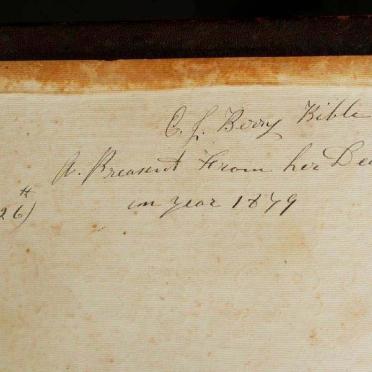 C. J. Berry Bible
A. Preasent From her De
in year 1879
26)